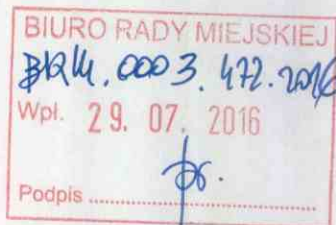 BIURO RADY MIEJSKIEJ
BRM.0003.472.2016
Wpł. 29. 07. 2016
Podpis ..............................